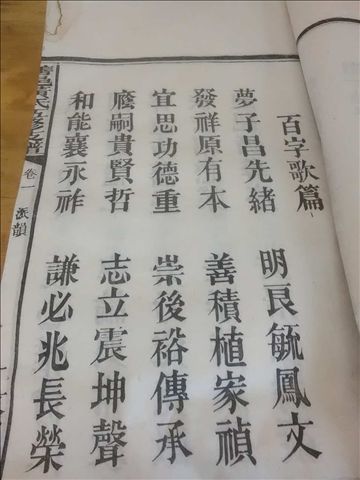 百字歌篇
夢子昌先緒 明良毓鳳文
發祥原有本 善積植家禎
宜思功德重 崇後裕傳承
廕嗣貴賢哲 志立震坤聲
和能襄永祚 謙必兆長榮
卷一 派韻